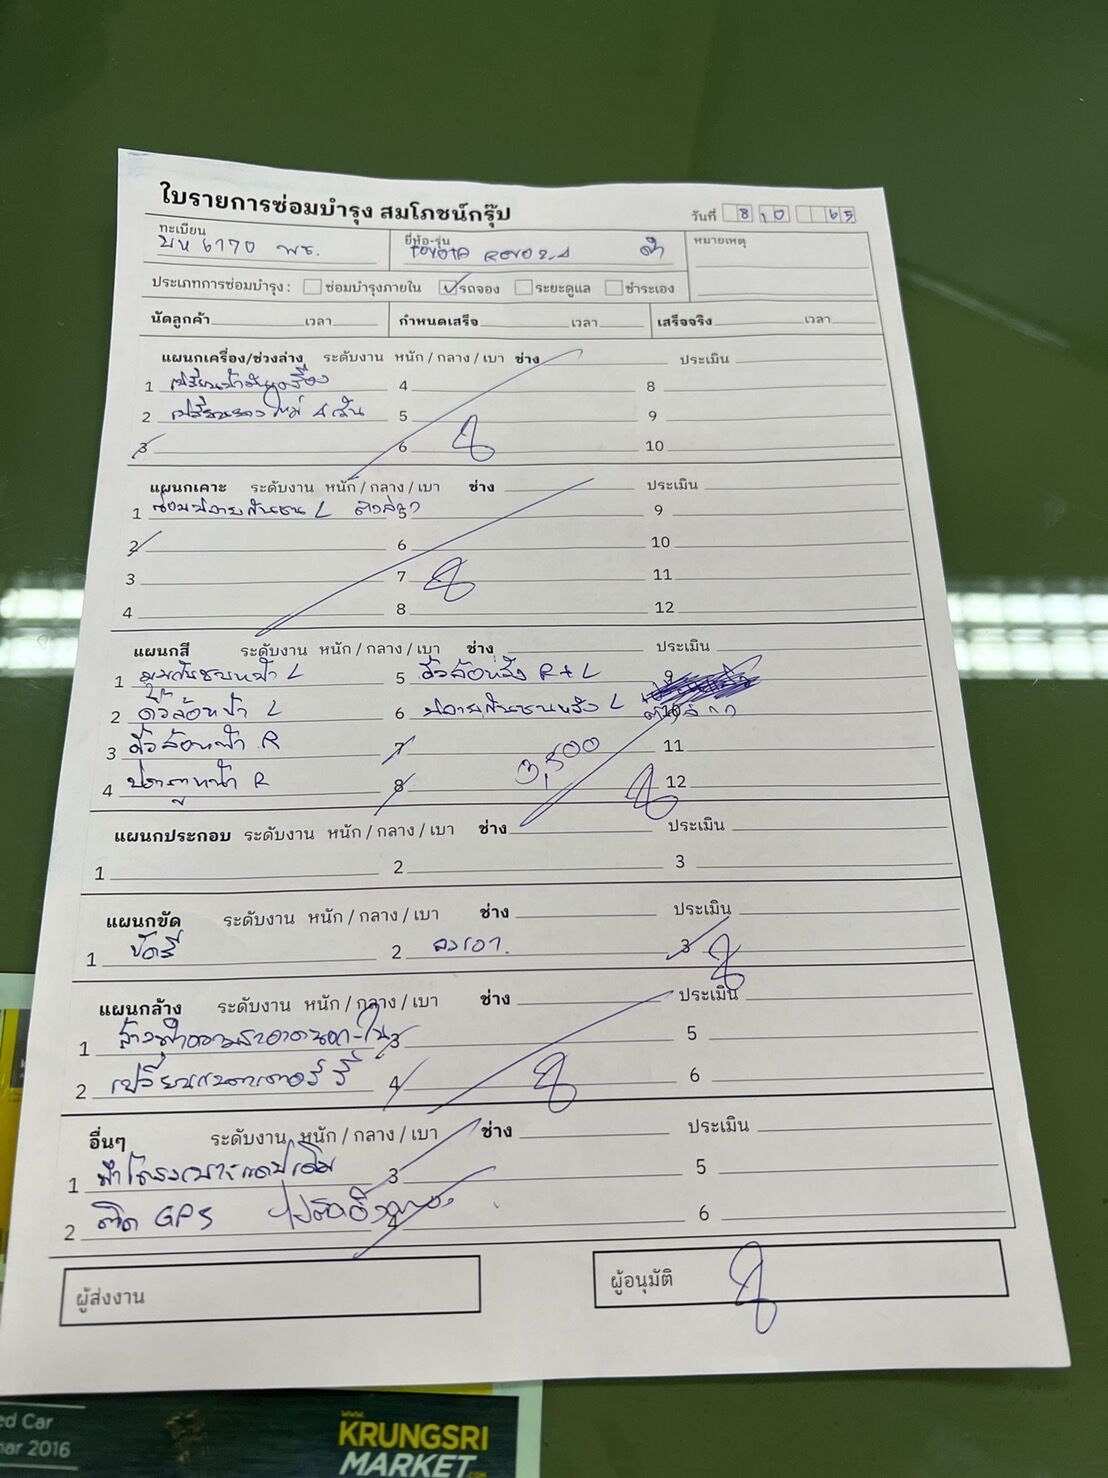 ใบรายการซ่อมบำรุง สมโภชน์กรุ๊ป
วันที่ 8 10 65
ทะเบียน ยี่ห้อ-รุ่น หมายเหตุ
บห 6170 พช. TOYOTA REVO 2.4 ดำ
ประเภทการซ่อมบำรุง : ซ่อมบำรุงภายใน ✓ รถจอง ระยะดูแล ชำระเอง
นัดลูกค้า เวลา กำหนดเสร็จ เวลา เสร็จจริง เวลา
แผนกเครื่อง/ช่วงล่าง ระดับงาน หนัก / กลาง / เบา ช่าง ประเมิน
1 เปลี่ยนน้ำมันเครื่อง 4 8
2 เปลี่ยนยางใหม่ 4 เส้น 5 9
3 6 10
แผนกเคาะ ระดับงาน หนัก / กลาง / เบา ช่าง ประเมิน
1 ซ่อมปลายกันชน L 5 9
2 6 10
3 7 11
4 8 12
แผนกสี ระดับงาน หนัก / กลาง / เบา ช่าง ประเมิน
1 มุมกันชนหน้า L 5 คิ้วล้อหลัง R+L 9
2 คิ้วล้อหน้า L 6 ปลายกันชนหลัง L 10
3 คิ้วล้อหน้า R 7 11
4 ประตูหน้า R 8 3,500 12
แผนกประกอบ ระดับงาน หนัก / กลาง / เบา ช่าง ประเมิน
1 2 3
แผนกขัด ระดับงาน หนัก / กลาง / เบา ช่าง ประเมิน
1 ขัดสี 2 ลงเงา 3
แผนกล้าง ระดับงาน หนัก / กลาง / เบา ช่าง ประเมิน
1 ล้างทำความสะอาดนอก-ใน 3 5
2 เปลี่ยนแบตเตอร์รี่ 4 6
อื่นๆ ระดับงาน หนัก / กลาง / เบา ช่าง ประเมิน
1 3 5
2 ติด GPS 4 6
ผู้ส่งงาน ผู้อนุมัติ
ed Car
nar 2016
WWW.
KRUNGSRI
MARKET.COM